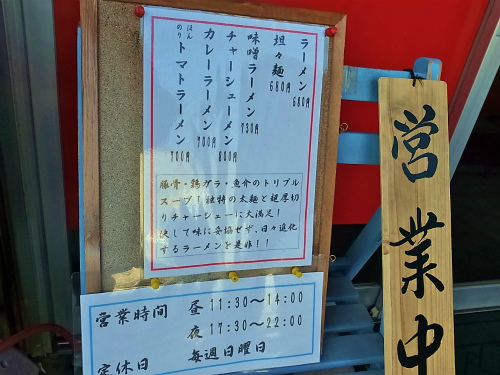 ラーメン 680円
坦々麺 680円
味噌ラーメン 730円
チャーシューメン 800円
カレーラーメン 700円
ほんのりトマトラーメン 700円
豚骨・鶏ガラ・魚介のトリプル
スープ!独特の太麺と超厚切
りチャーシューに大満足!
決して味に妥協せず、日々進化
するラーメンを是非!!
営業時間 昼 11:30～14:00
夜 17:30～22:00
定休日 毎週日曜日
営業中